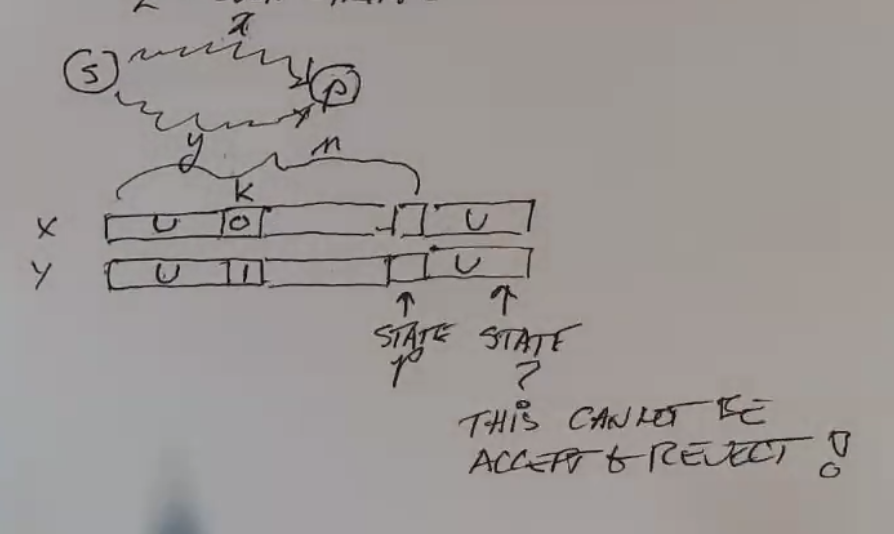 x
S
p
y n
K
X U 0 U
Y U 1 U
STATE STATE
p ?
THIS CANNOT BE
ACCEPT & REJECT !